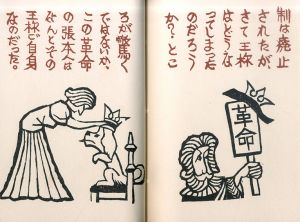 制は廃止
されたが、
さて王様
はどうな
ってしまった
のだろう
か？とこ
革命
ろが驚く
ではないか、
この革命
の張本人は
なんとその
王様ご自身
なのだった。